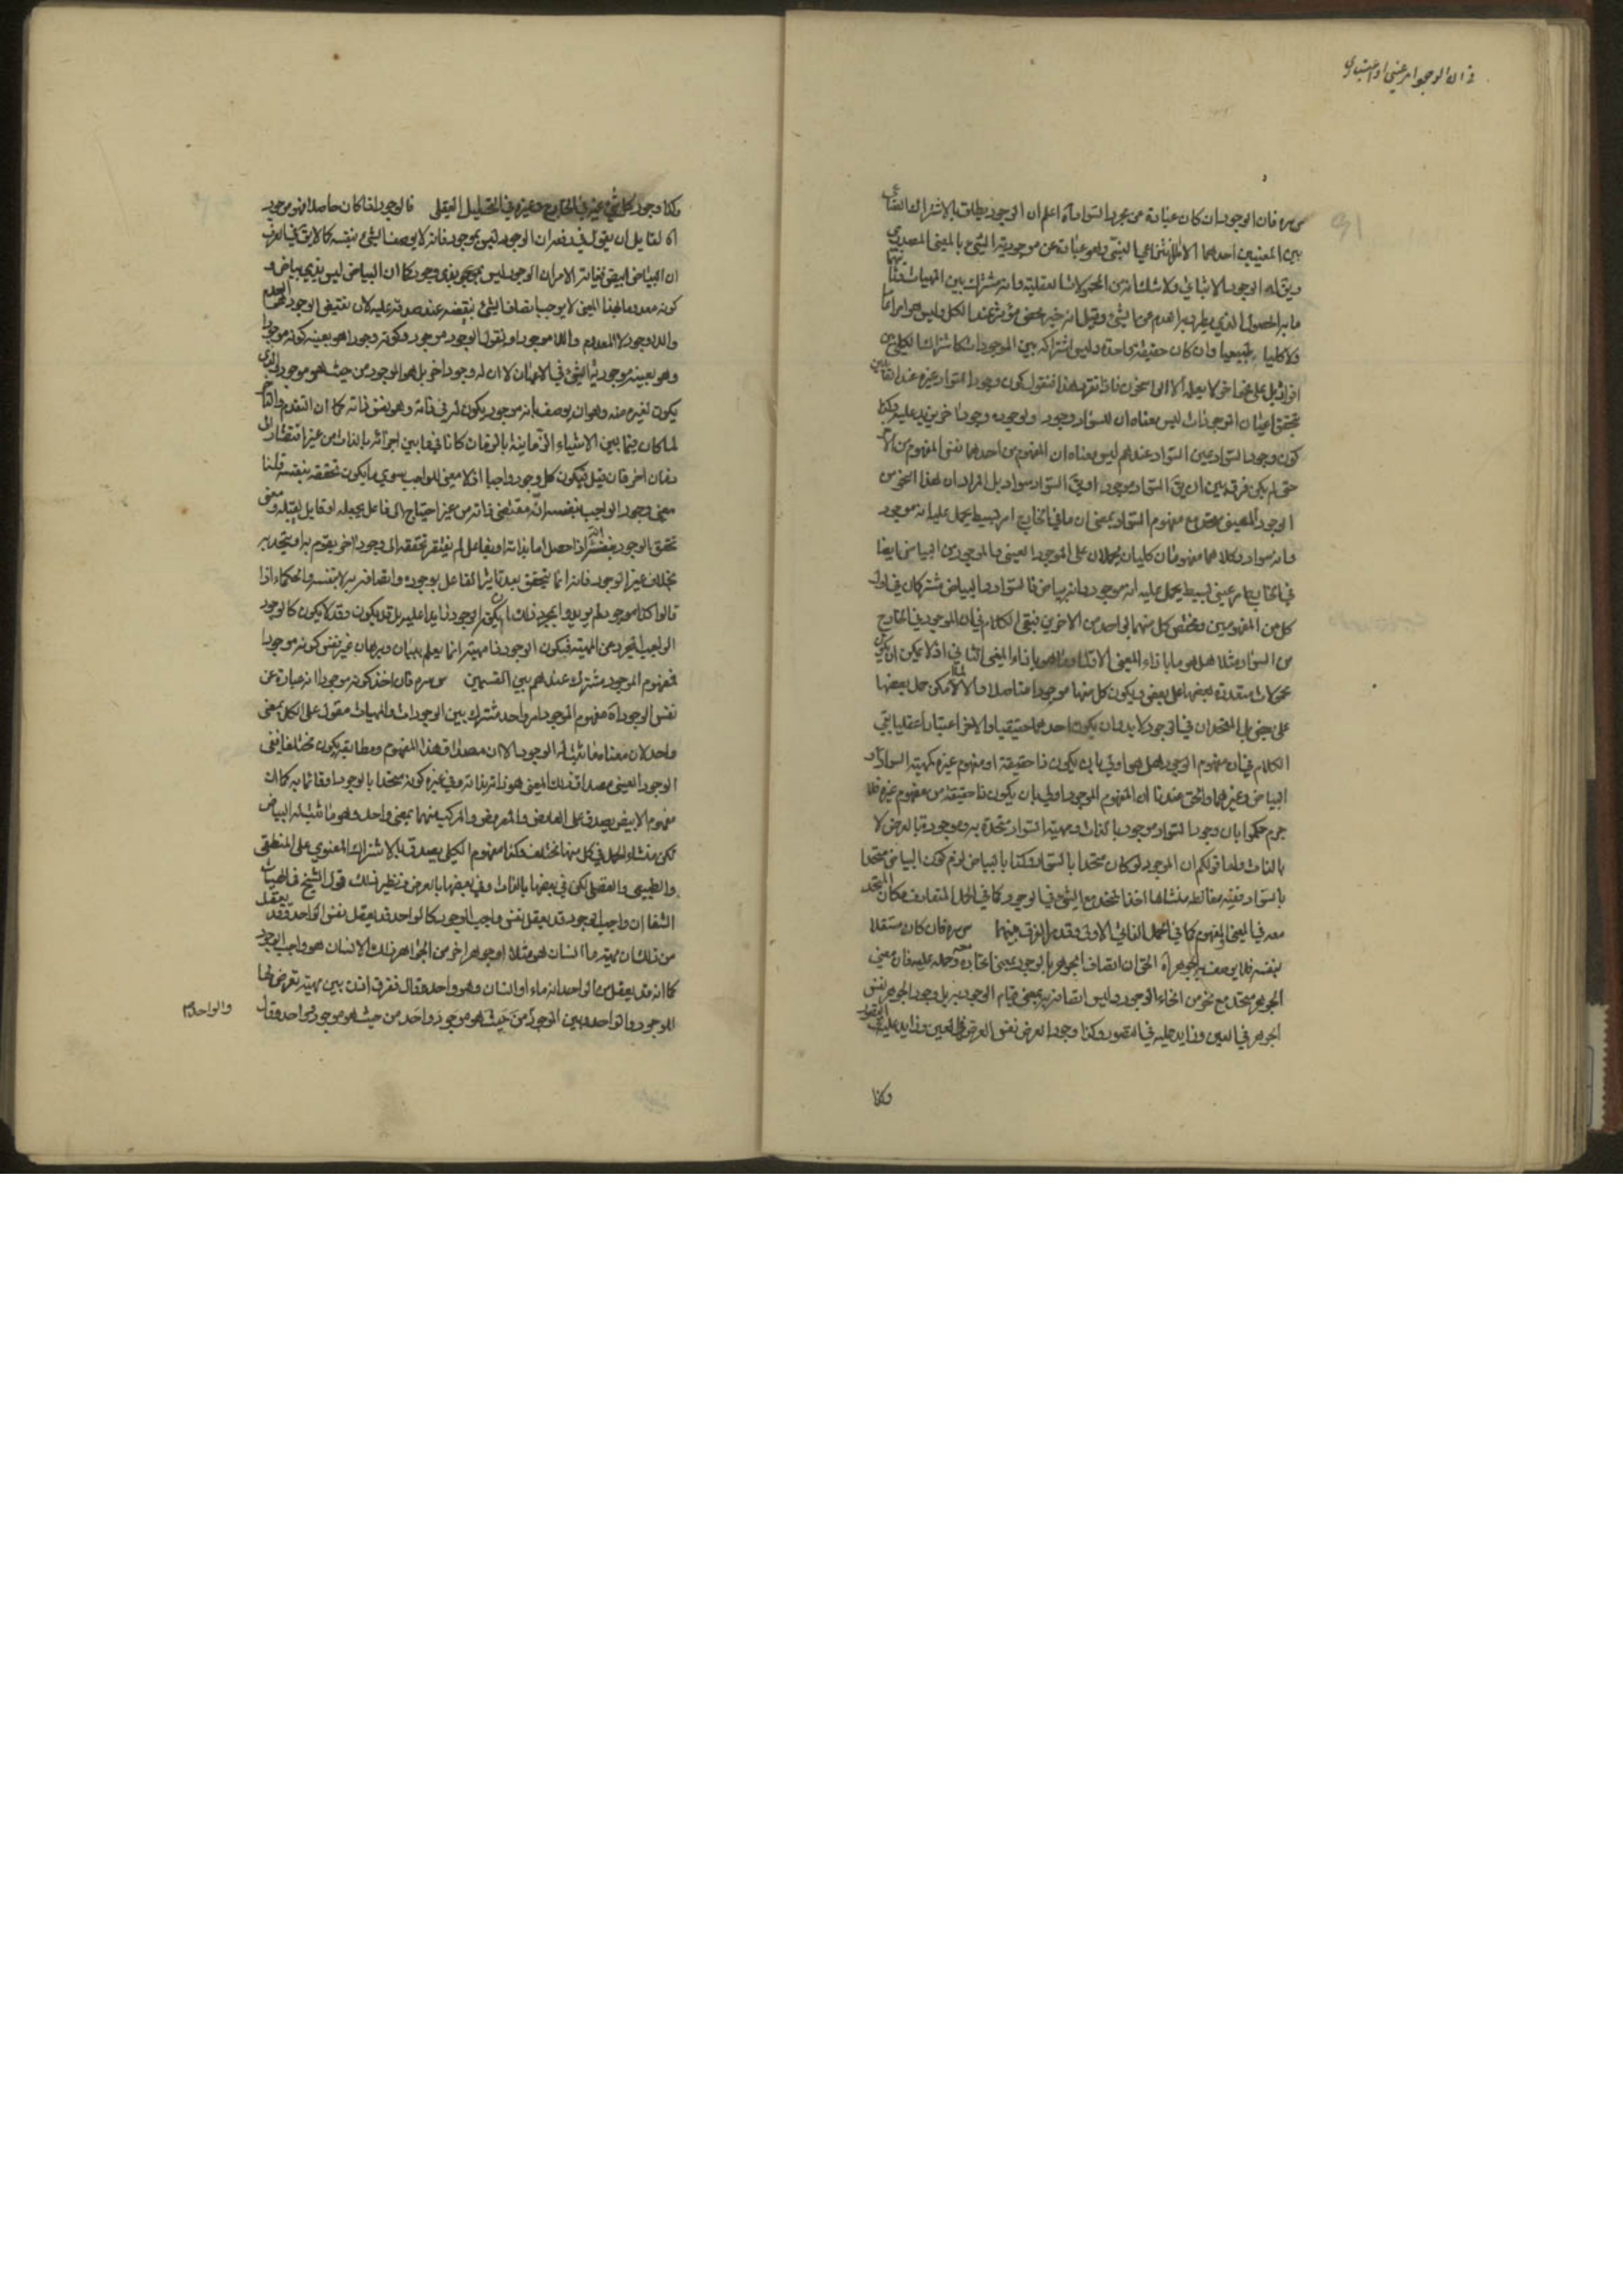 في ان الوجود امر عيني او اعتباري
س سره فان الوجود ان كان عبارة عن مجرد السواد آه اعلم ان الوجود يطلق بالاشتراك
بين المعنيين احدهما الانتزاعي النسبي وهو عبارة عن موجودية الشيء بالمعنى المصدري
ويق له الوجود الاثباتي ولا شك انه من المحمولات العقلية وانه مشترك بين المهيات وثانيهما
ما به الحصول الذي يطرد به العدم عن الشيء وقيل انه خير محض مؤثر عند الكل وليس هو امرا عاما
ولا كليا طبيعيا وان كان حقيقة واحدة وليس اشتراكه بين الموجودات كاشتراك الكلي بين
افراده بل على نحو اخر لا يعلمه الا الراسخون فاذا تقرر هذا فنقول كون وجود السواد غيره عند القائلين
بتحقق اعيان الوجودات ليس معناه ان للسواد وجودا ولوجوده وجودا اخر يزيد عليه وكذا
كون وجود السواد عين السواد عندهم ليس معناه ان المفهوم من احدهما نفس المفهوم من الاخر
حتى لم يكن فرق بين ان يق السواد موجود او يق السواد سواد بل المراد ان هذا النحو من
الوجود العيني متحد مع مفهوم السواد بمعنى ان ما في الخارج امر بسيط يحمل عليه انه موجود
وانه سواد وكلاهما مفهومان كليان يحملان على الموجود العيني والموجود من البياض ايضا
في الخارج امر عيني بسيط يحمل عليه انه موجود وانه بياض فالسواد والبياض مشتركان في اول
كل من المفهومين ومختص كل منهما بواحد من الاخرين فبقي الكلام في ان الموجود في الخارج
من السواد مثلا هل هو ما باذاء المعنى الاول او ما هو باذاء المعنى الثاني اذ لا يمكن ان يكون
محمولات متعددة بعضها على بعض ويكون كل منها موجودا متاصلا والا لما امكن حمل بعضها
على بعض بل المتحدان في الوجود لا بد وان يكون احدهما حقيقيا والاخر اعتباريا عقليا بقي
الكلام في ان مفهوم الوجود هل هو اولى بان يكون ذا حقيقة او مفهوم غيره كمهية السواد او
البياض وغيرهما والحق عندنا ان المفهوم الموجود اولى بان يكون ذا حقيقة من مفهوم غيره فلا
جرم حكموا بان وجود السواد موجود بالذات ومهية السواد متحدة به وموجودة بالعرض لا
بالذات واما قولكم ان الموجود لو كان متحدا بالسواد وكذا بالبياض لزم كون البياض متحدا
بالسواد ففيه مغالطة منشاها اخذ المتحد مع الشيء في الوجود كما في الحمل المتعارف مكان المتحد
معه في المعنى والمفهوم كما في الحمل الذاتي الاولى وقد مر الفرق بينهما س سره فان كان مستقلا
بنفسه فلا يوصف به الجوهر آه الحق ان اتصاف الجوهر بالوجود بمعنى اتحاده معه وحمله عليه فان معنى
الجوهر متحد مع نحو من انحاء الوجود وليس اتصافه به بمعنى قيام الوجود به بل وجود الجوهر نفس
الجوهر في العين وزايد عليه في التصور وكذا وجود العرض نفس العرض في العين وزايد عليه في التصور
وكذا
وكذا وجود كل شيء عينه في الخارج وغيره في التحليل العقلي فالوجود اذا كان حاصلا فهو موجود
آه لقايل ان يقول في دفعه ان الوجود ليس بموجود فانه لا يوصف الشيء بنفسه كما لا يق في العرف
ان البياض ابيض فغاية الامر ان الوجود ليس بموجود بذي وجود كما ان البياض ليس بذي بياض و
كونه معدوما بهذا المعنى لا يوجب اتصاف الشيء بنقيضه عند صدقه عليه لان نقيض الوجود هو العدم
واللاوجود لا المعدوم واللاموجود او نقول الوجود موجود وكونه وجودا هو بعينه كونه موجودا
وهو بعينه موجودية الشيء في الاعيان لا ان له وجودا اخر بل هو الموجود من حيث هو موجود والذي
يكون لغيره منه وهو ان يوصف بانه موجود يكون له في ذاته وهو نفس ذاته كما ان التقدم والتاخر
لما كان فيما بين الاشياء الزمانية بالزمان كانا فيما بين اجزائه بالذات من غير افتقار الى
زمان اخر فان قيل فيكون كل وجود واجبا اذ لا معنى للواجب سوى ما يكون تحققه بنفسه قلنا
معنى وجود الواجب بنفسه انه مقتضى ذاته من غير احتياج الى فاعل يجعله او قابل يقبله ومعنى
تحقق الوجود بنفسه انه اذا حصل اما بذاته او بفاعل لم يفتقر تحققه الى وجود اخر يقوم به او يتحد به
بخلاف غير الوجود فانه انما يتحقق بعد تاثير الفاعل بوجوده واتصافه به لا بنفسه والحكماء اذا
قالوا كذا موجود لم يريدوا بمجرد ذلك ان يكون الوجود زايدا عليه بل قد يكون وقد لا يكون كالوجود
الواجب المجرد عن المهية فيكون الوجود ذا مهية انما يعلم ببيان وبرهان غير نفس كونه موجودا
فمفهوم الموجود مشترك عندهم بين القسمين س سره فان اخذ كونه موجودا انه عبارة عن
نفس الوجود آه مفهوم الموجود امر واحد مشترك بين الوجودات والمهيات مقول على الكل بمعنى
واحد لان معناه ما ثبت له الوجود الا ان مصداق هذا المفهوم ومطابقه يكون مختلفا ففي
الوجود العيني مصداق ذلك المعنى هو ذاته بذاته وفي غيره كونه متحدا بالوجود او قائما به كما ان
مفهوم الابيض يصدق على العارض والمعروض والمركب منهما بمعنى واحد وهو ما ثبت له البياض
لكن منشاء الحمل في كل منها مختلف وكذا مفهوم الكلي يصدق بالاشتراك المعنوي على المنطقي
والطبيعي والعقلي لكن في بعضها بالذات وفي بعضها بالعرض ونظير ذلك قول الشيخ في الهيات
الشفا ان واجب الوجود قد يعقل نفس واجب الوجود كالواحد قد يعقل نفس الواحد وقد يعقل
من ذلك ان مهية ما انسان هو مثلا او جوهر اخر من الجواهر ذلك الانسان هو واجب الوجود
كما انه قد يعقل من الواحد انه ماء او انسان وهو واحد وقال ففرق اذن بين مهية تعرض لها
الموجود والواحد وبين الموجود من حيث هو موجود وواحد من حيث هو موجود او واحد وقال
والواحد